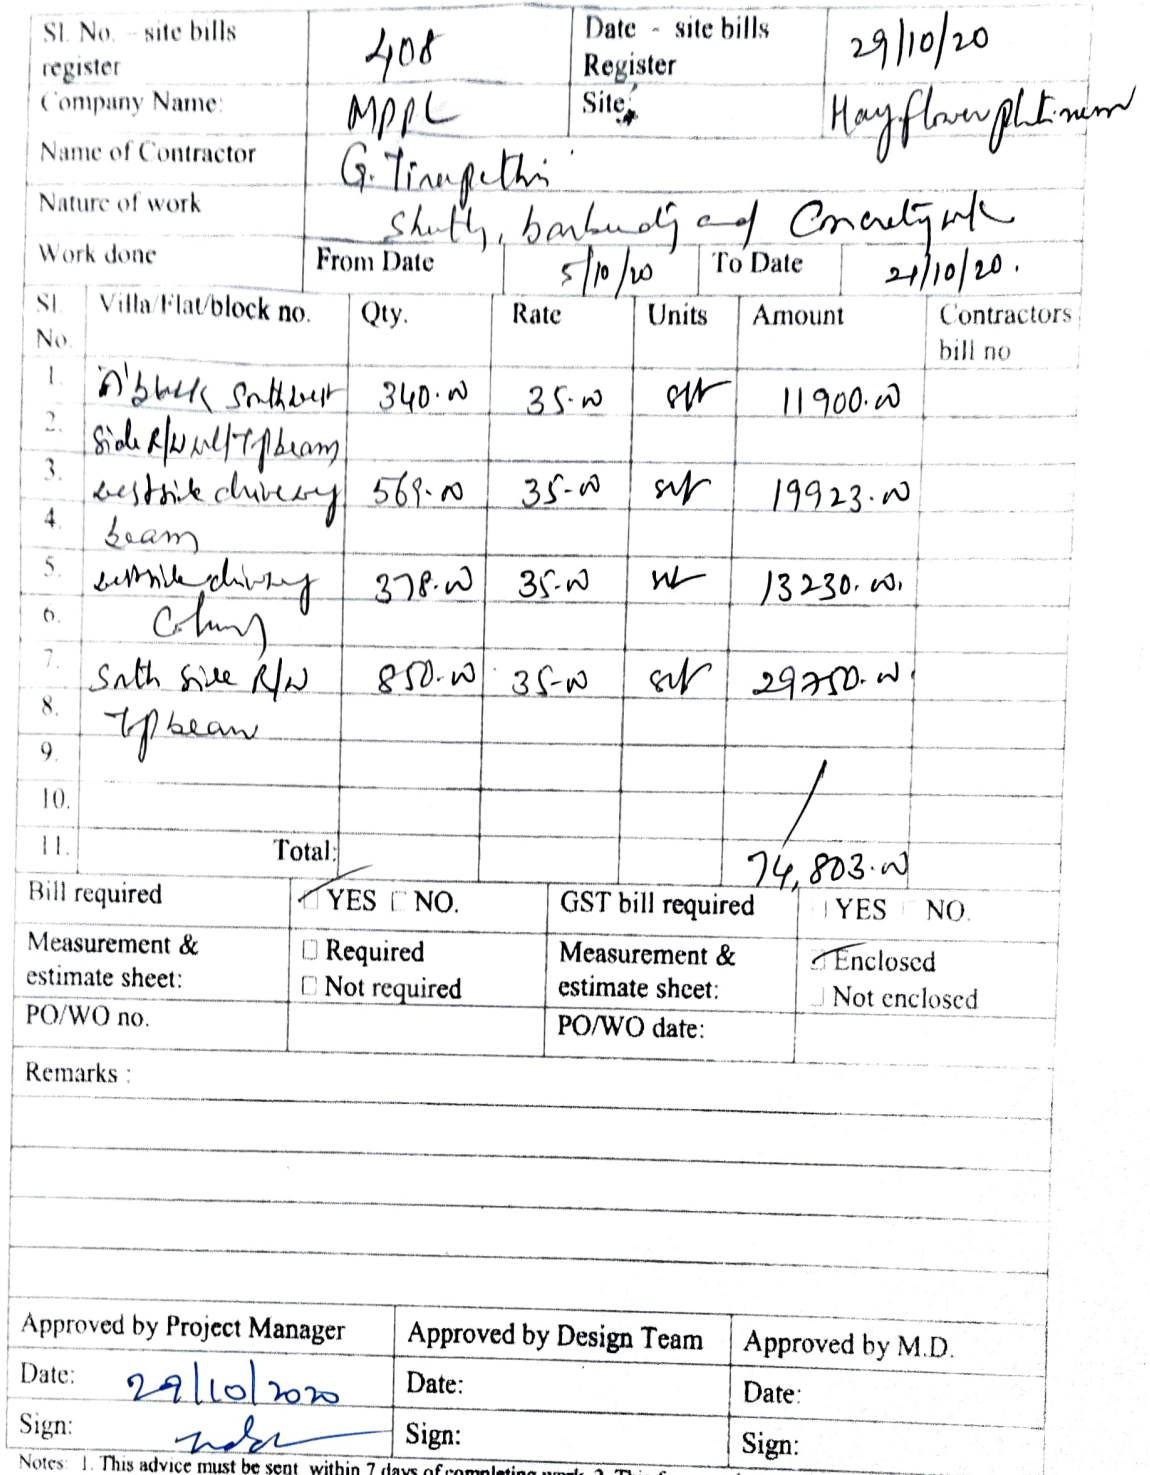 Sl. No. - site bills register 408 Date - site bills Register 29/10/20
Company Name: MPPL Site: Mayflower platinum
Name of Contractor G. Tirupathi
Nature of work and Concreting work
Work done From Date 5/10/20 To Date 21/10/20.
Sl. No. Villa/Flat/block no. Qty. Rate Units Amount Contractors bill no
1. 'A' block South west 340.00 35.00 sft 11900.00
2. side R/W Top beam
3. west side driveway 569.00 35.00 sft 19923.00
4. beam
5. west side driveway 378.00 35.00 sft 13230.00.
6. Columns
7. South side R/W 850.00 35.00 sft 29750.00.
8. Top beam
9.
10.
11. Total: 74,803.00
Bill required YES NO. GST bill required YES NO.
Measurement & estimate sheet: Required Not required Measurement & estimate sheet: Enclosed Not enclosed
PO/WO no. PO/WO date:
Remarks :
Approved by Project Manager Approved by Design Team Approved by M.D.
Date: 29/10/2020 Date: Date:
Sign: Sign: Sign:
Notes: 1. This advice must be sent within 7 days of completing work. 2. This